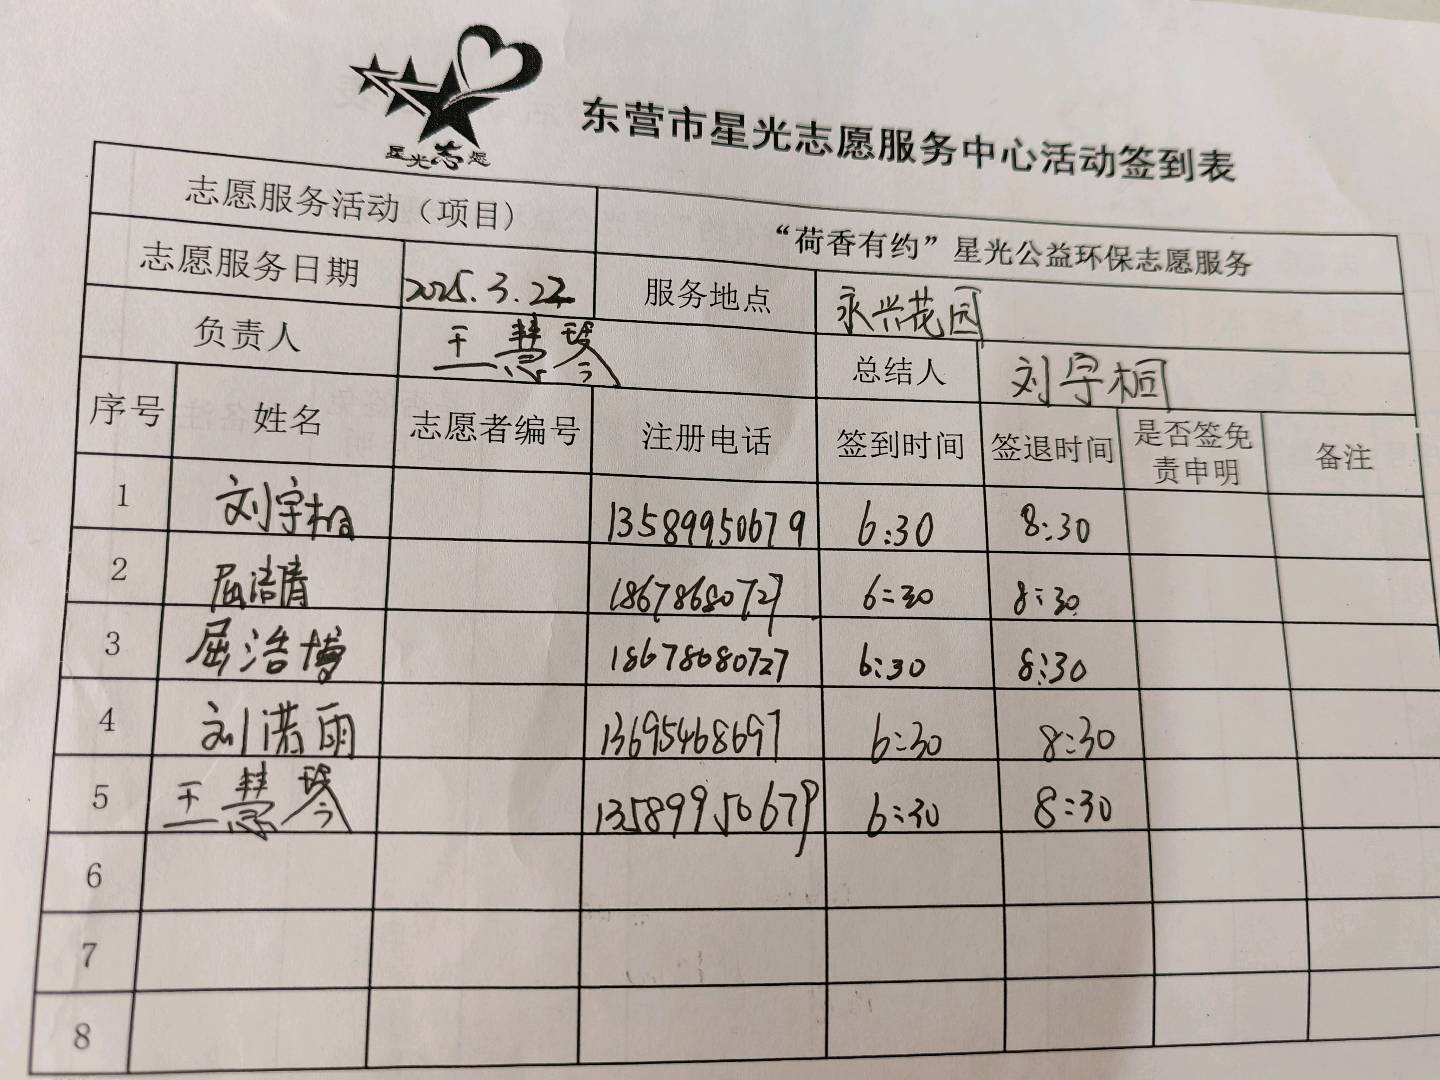 星光志愿
东营市星光志愿服务中心活动签到表
志愿服务活动（项目） “荷香有约”星光公益环保志愿服务
志愿服务日期 2025.3.22 服务地点 永兴花园
负责人 王慧琴 总结人 刘宇桐
序号 姓名 志愿者编号 注册电话 签到时间 签退时间 是否签免责申明 备注
1 刘宇桐 13589950679 6:30 8:30
2 屈浩清 18678680727 6:30 8:30
3 屈浩博 18678680727 6:30 8:30
4 刘诺雨 13695468697 6:30 8:30
5 王慧琴 13589950679 6:30 8:30
6
7
8